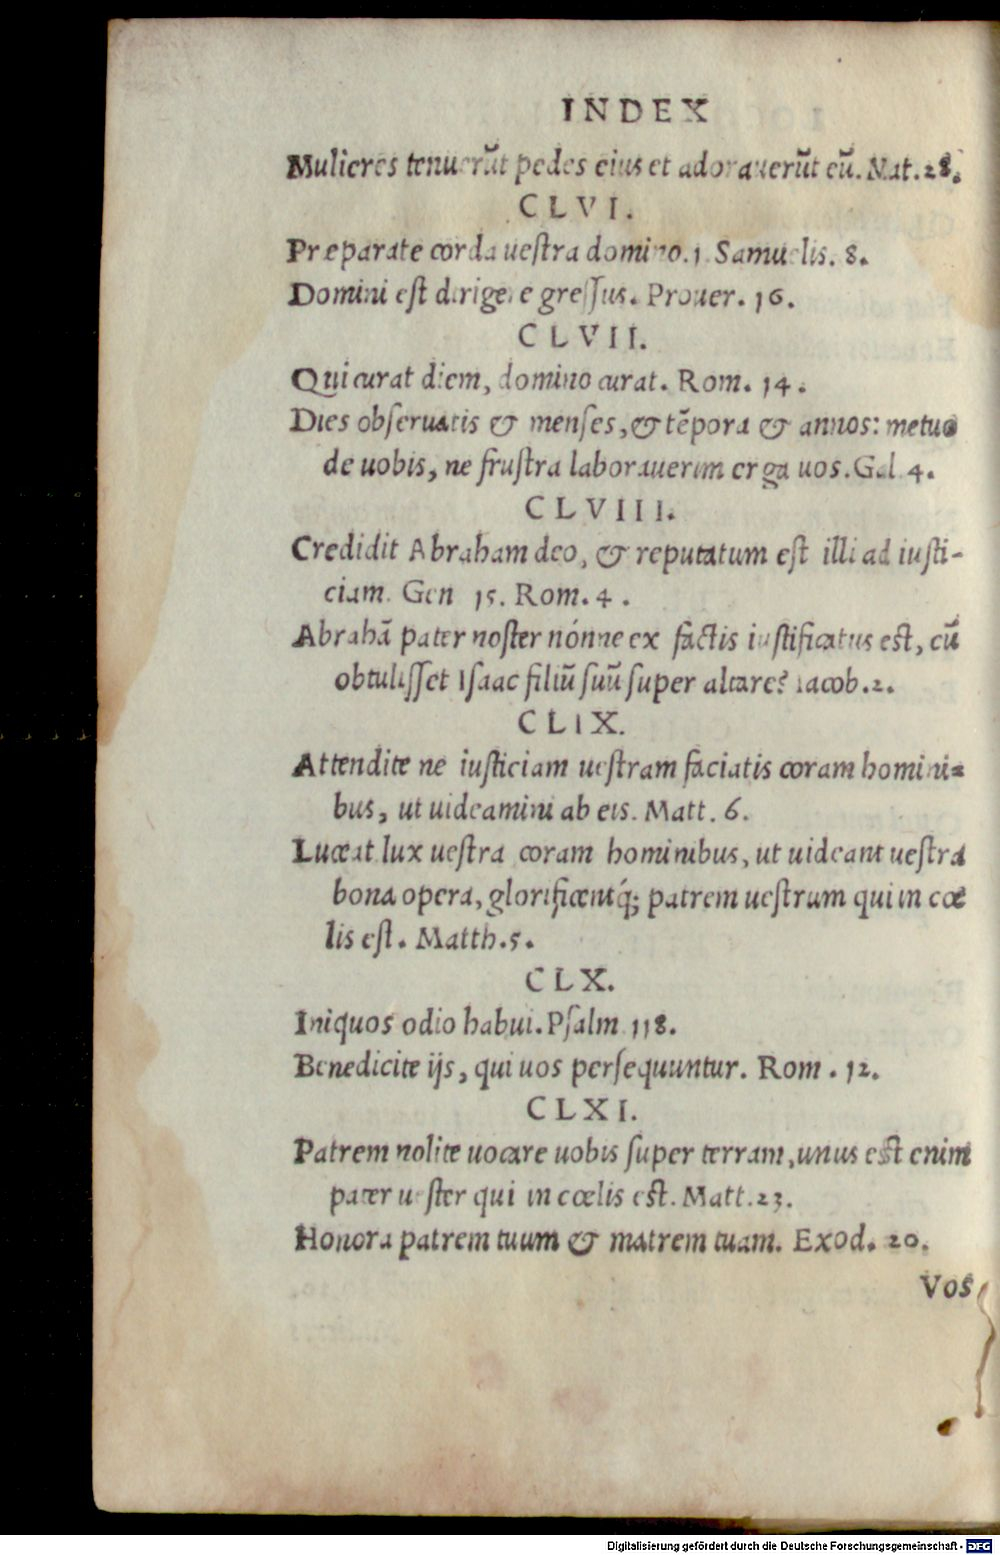 INDEX
Mulieres tenuerũt pedes eius et adorauerũt eũ. Mat. 28.
CLVI.
Præparate corda uestra domino. 1 Samuelis. 8.
Domini est dirigere gressus. Prouer. 16.
CLVII.
Qui curat diem, domino curat. Rom. 14.
Dies obseruatis & menses, & tẽpora & annos: metuo
de uobis, ne frustra laborauerim erga uos. Gal. 4.
CLVIII.
Credidit Abraham deo, & reputatum est illi ad iusti-
ciam. Gen 15. Rom. 4.
Abrahã pater noster nónne ex factis iustificatus est, cũ
obtulisset Isaac filiũ suũ super altare? Iacob. 2.
CLIX.
Attendite ne iusticiam uestram faciatis coram homini=
bus, ut uideamini ab eis. Matt. 6.
Luceat lux uestra coram hominibus, ut uideant uestra
bona opera, glorificentq́; patrem uestrum qui in cœ
lis est. Matth. 5.
CLX.
Iniquos odio habui. Psalm 118.
Benedicite ijs, qui uos persequuntur. Rom. 12.
CLXI.
Patrem nolite uocare uobis super terram, unus est enim
pater uester qui in cœlis est. Matt. 23.
Honora patrem tuum & matrem tuam. Exod. 20.
Vos
Digitalisierung gefördert durch die Deutsche Forschungsgemeinschaft - DFG